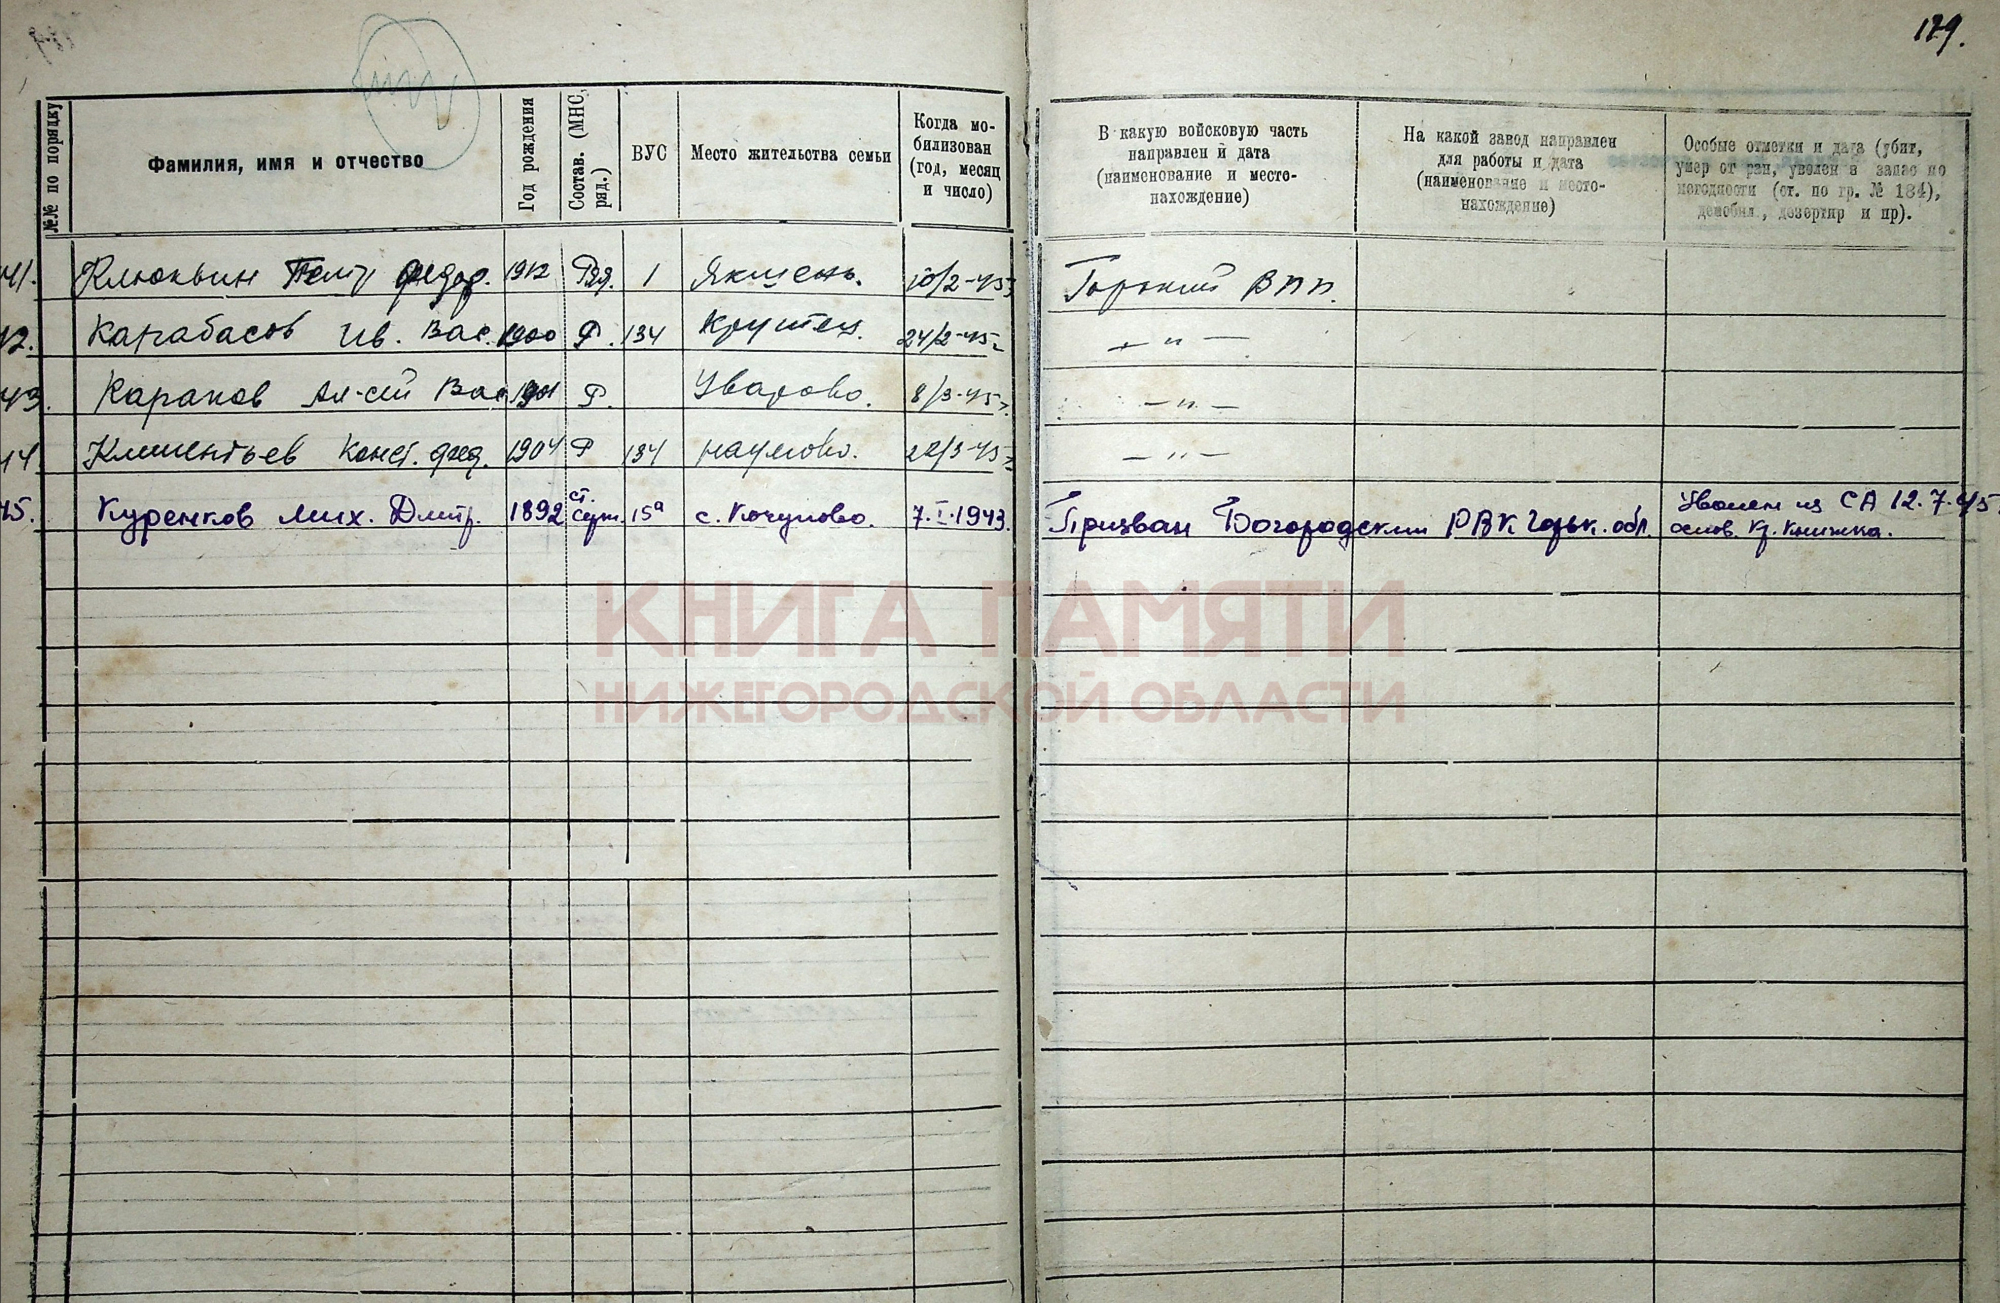 179.
№№ по порядку
Фамилия, имя и отчество
Год рождения
Состав. (МНС, ряд.)
ВУС
Место жительства семьи
Когда мобилизован (год, месяц и число)
В какую войсковую часть
направлен и дата
(наименование и место-
нахождение)
На какой завод направлен
для работы и дата
(наименование и место-
нахождение)
Особые отметки и дата (убит,
умер от ран, уволен в запас по
негодности (ст. по гр. № 184),
демобил., дезертир и пр).
41. Клюквин Петр Федор. 1912 Ряд. 1 Якшень. 10/2-45г Горький ВПП.
42. Карабасов Ив. Вас. 1900 Р. 134 Крутец. 24/2-45г — " —
43. Караков Ал-сей Вас 1901 Р. Уварово. 8/3-45г. — " —
44. Климентьев Конст. Фед. 1904 Р 134 Наумово. 22/3-45г — " —
45. Куренков Мих. Дмитр. 1892 ст. серж. 15а с. Кочуново. 7.I.1943. Призван Богородским РВК Горьк. обл. Уволен из СА 12.7.45.
основ. Кр. Книжка.
КНИГА ПАМЯТИ
НИЖЕГОРОДСКОЙ ОБЛАСТИ